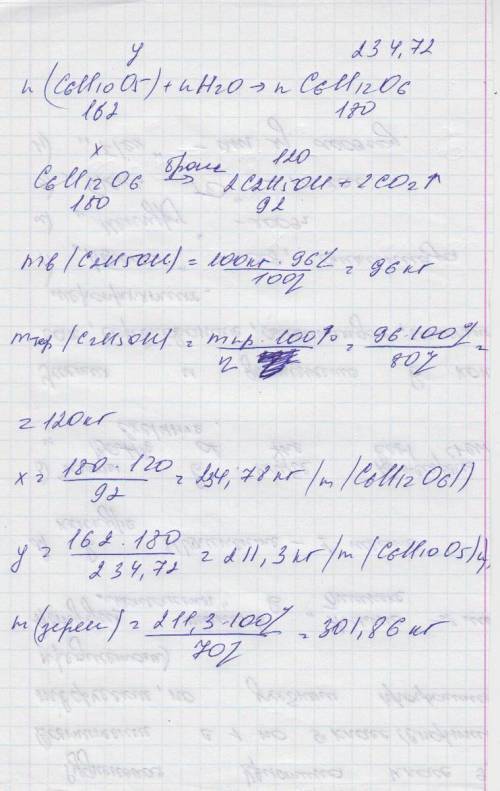 y 234,72
n(C6H10O5)+nH2O→n C6H12O6
162 180
x 120
C6H12O6 брож→ 2C2H5OH+2CO2↑
180 92
mв(C2H5OH)=100кг·96%/100%=96кг
mтер(C2H5OH)=mпр·100%/η=96·100%/80%=
=120кг
x=180·120/92=234,78кг/m/(C6H12O6))
y=162·180/234,72=211,3кг/m/(C6H10O5)n)
m(зерен)=211,3·100%/70%=301,86кг